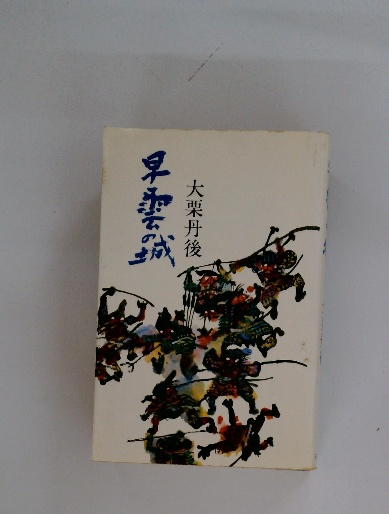 早雲の城
大栗丹後